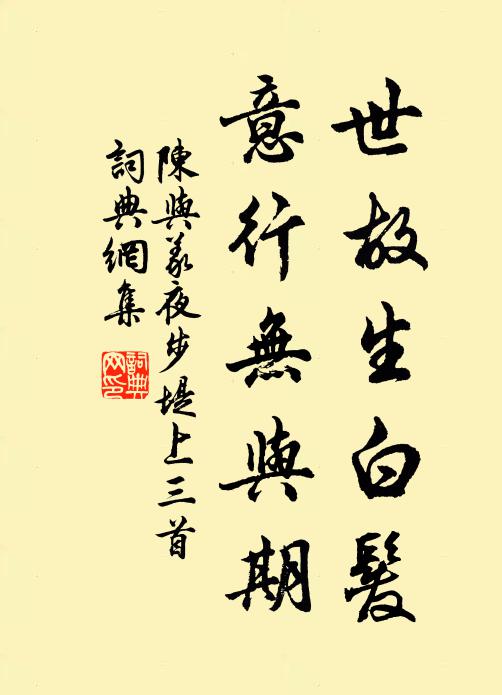 世故生白髮
意行無與期
陳與義夜步堤上三首
詞典網集
詞典
网印